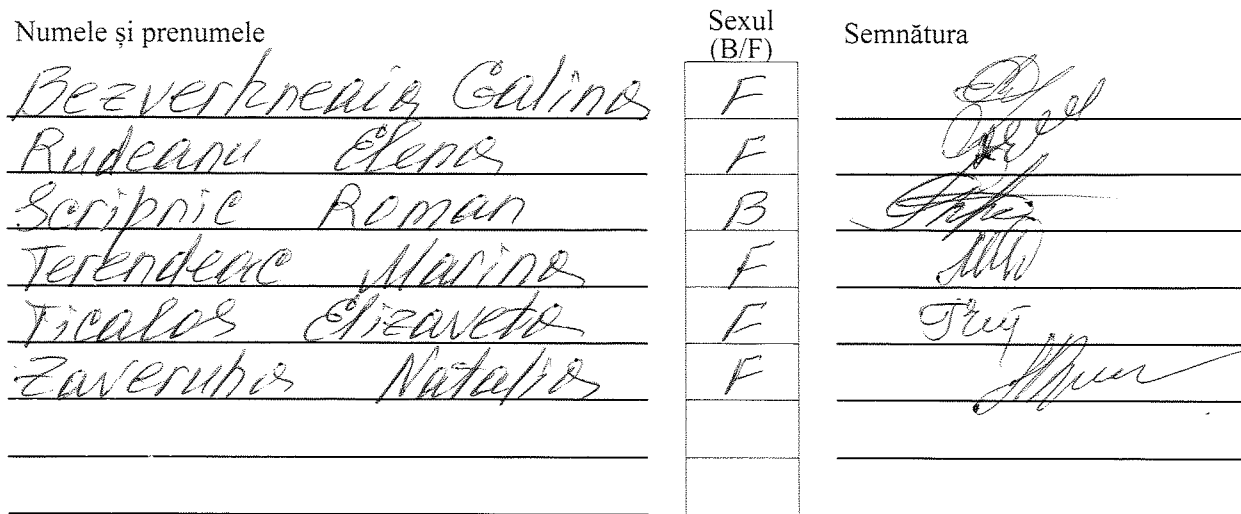 Numele și prenumele Sexul (B/F) Semnătura
Bezverhneaia Galina F
Rudeanu Elena F
Scripnic Roman B
Terendeac Marina F
Ticalos Elizaveta F
Zaveruha Natalia F